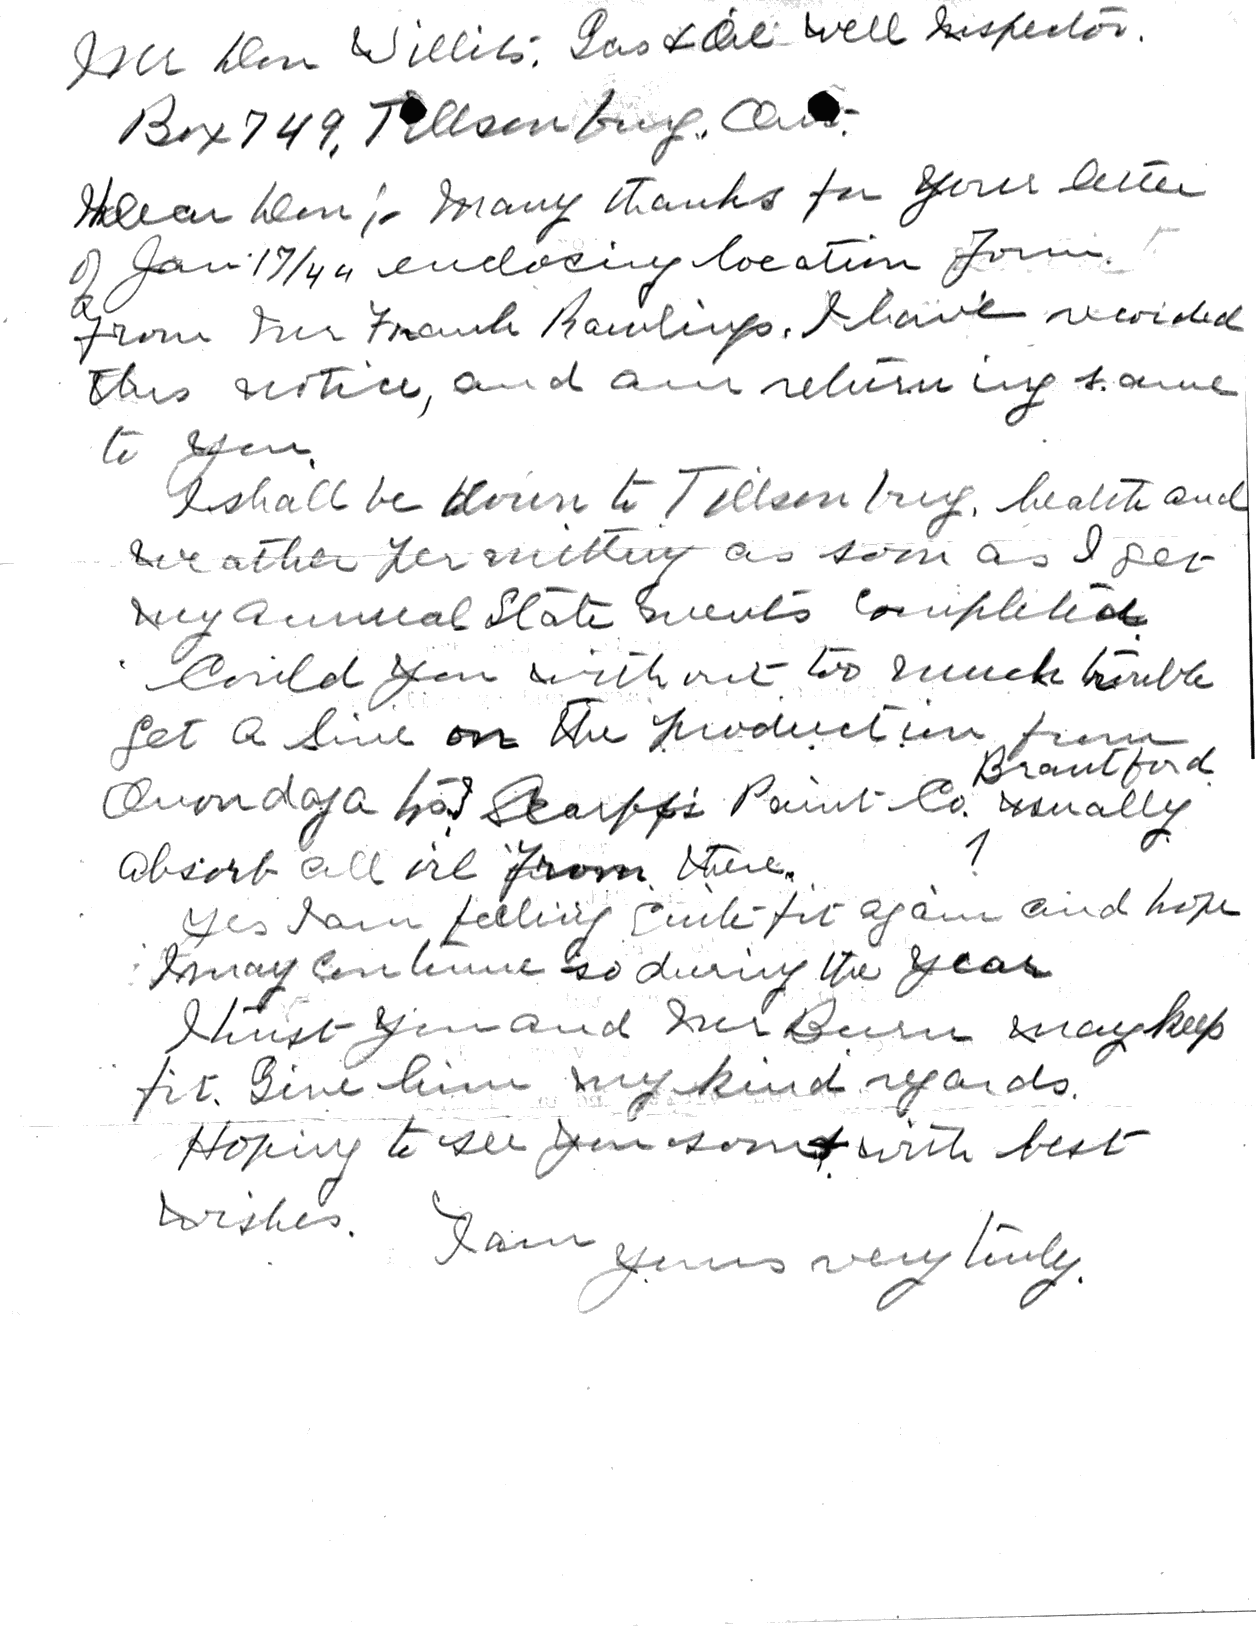 Mr Don Willits, Gas & Oil well Inspector.
Box 749, Tillsonburg, Ont.
Dear Don;- Many thanks for your letter
of Jan 17/44 enclosing location Form.
From Mr Frank Rawlings. I have recorded
this notice, and am returning same
to you.
I shall be down to Tillsonburg, health and
weather permitting as soon as I get
my annual Statements completed.
Could you without too much trouble
get a line on the production from
Brantford
Onondaga Scarfe's Paint Co. usually
absorb all oil From there. ?
Yes I am feeling quite fit again and hope
I may continue so during the year
I trust you and Mr Burn may keep
fit. Give him my kind regards.
Hoping to see you soon with best
wishes. I am
yours very truly.